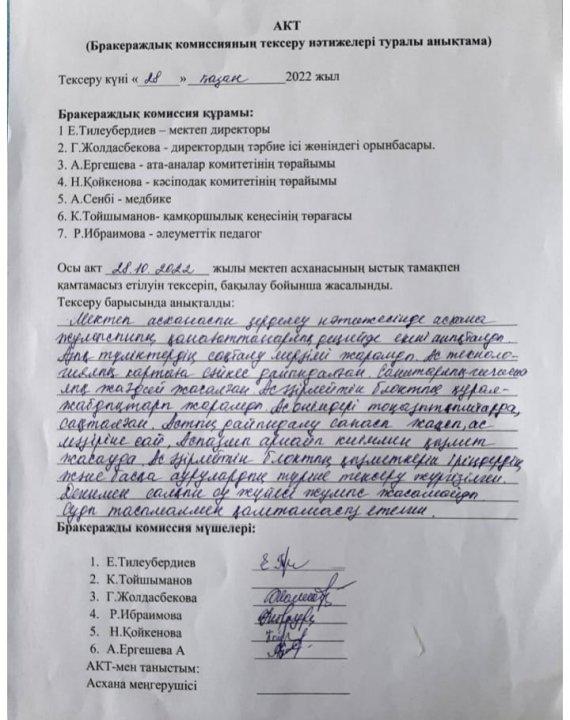 АКТ
(Бракераждық комиссияның тексеру нәтижелері туралы анықтама)
Тексеру күні « 28 » қазан 2022 жыл
Бракераждық комиссия құрамы:
1 Е.Тилеубердиев – мектеп директоры
2. Г.Жолдасбекова - директордың тәрбие ісі жөніндегі орынбасары.
3. А.Ергешева - ата-аналар комитетінің төрайымы
4. Н.Қойкенова - кәсіподақ комитетінің төрайымы
5. А.Сенбі - медбике
6. К.Тойшыманов- қамқоршылық кеңесінің төрағасы
7. Р.Ибраимова - әлеуметтік педагог
Осы акт 28.10.2022 жылы мектеп асханасының ыстық тамақпен
қамтамасыз етілуін тексеріп, бақылау бойынша жасалынды.
Тексеру барысында анықталды:
Мектеп асханасын зерделеу нәтижесінде асхана
жұмысының қанағаттанарлық деңгейде екені анықталды.
Азық түліктердің сақталу мерзімі жарамды. Ас техноло-
гиялық картаға сәйкес дайындалған. Санитарлық-гигиена
лық жағдай жасалған. Ас әзірлейтін блоктың құрал-
жабдықтары жарамды. Ас өнімдері тоңазытқыштарда
сақталған. Астың дайындалу сапасы жақсы, ас
мәзіріне сай. Аспазшы арнайы киіммен қызмет
жасауда. Ас әзірлейтін блоктың қызметкерін іріңдердің
және басқа аурулардың түріне тексеру жүргізілген.
су жүйесі жұмыс жасамайды
Суды тасымалмен қамтамасыз етеген.
Бракеражды комиссия мүшелері:
1. Е.Тилеубердиев
2. К.Тойшыманов
3. Г.Жолдасбекова
4. Р.Ибраимова
5. Н.Қойкенова
6. А.Ергешева А
АКТ-мен таныстым:
Асхана меңгерушісі